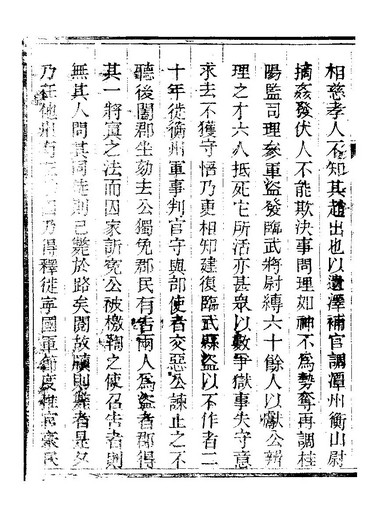 相慈孝人不知其趙出也以遺澤補官調潭州衡山尉
摘姦發伏人不能欺決事問理如神不爲勢奪再調桂
陽監司理參軍盜發臨武將尉縛六十餘人以獻公辨
理之才六人抵死它所活亦甚衆以數爭獄事失守意
求去不獲守悟乃更相知建復臨武縣盜以不作者二
十年徙衡州軍事判官守與部使者交惡公諫止之不
聽後闔郡坐劾去公獨免郡民有告兩人爲盜者郡得
其一將寘之法而囚家訴寃公被檄鞫之使召告者則
無其人問其同徒則已斃於路矣閱故牘則觧者是夕
乃在他州有乃得釋徙寧國軍節度推官豪民